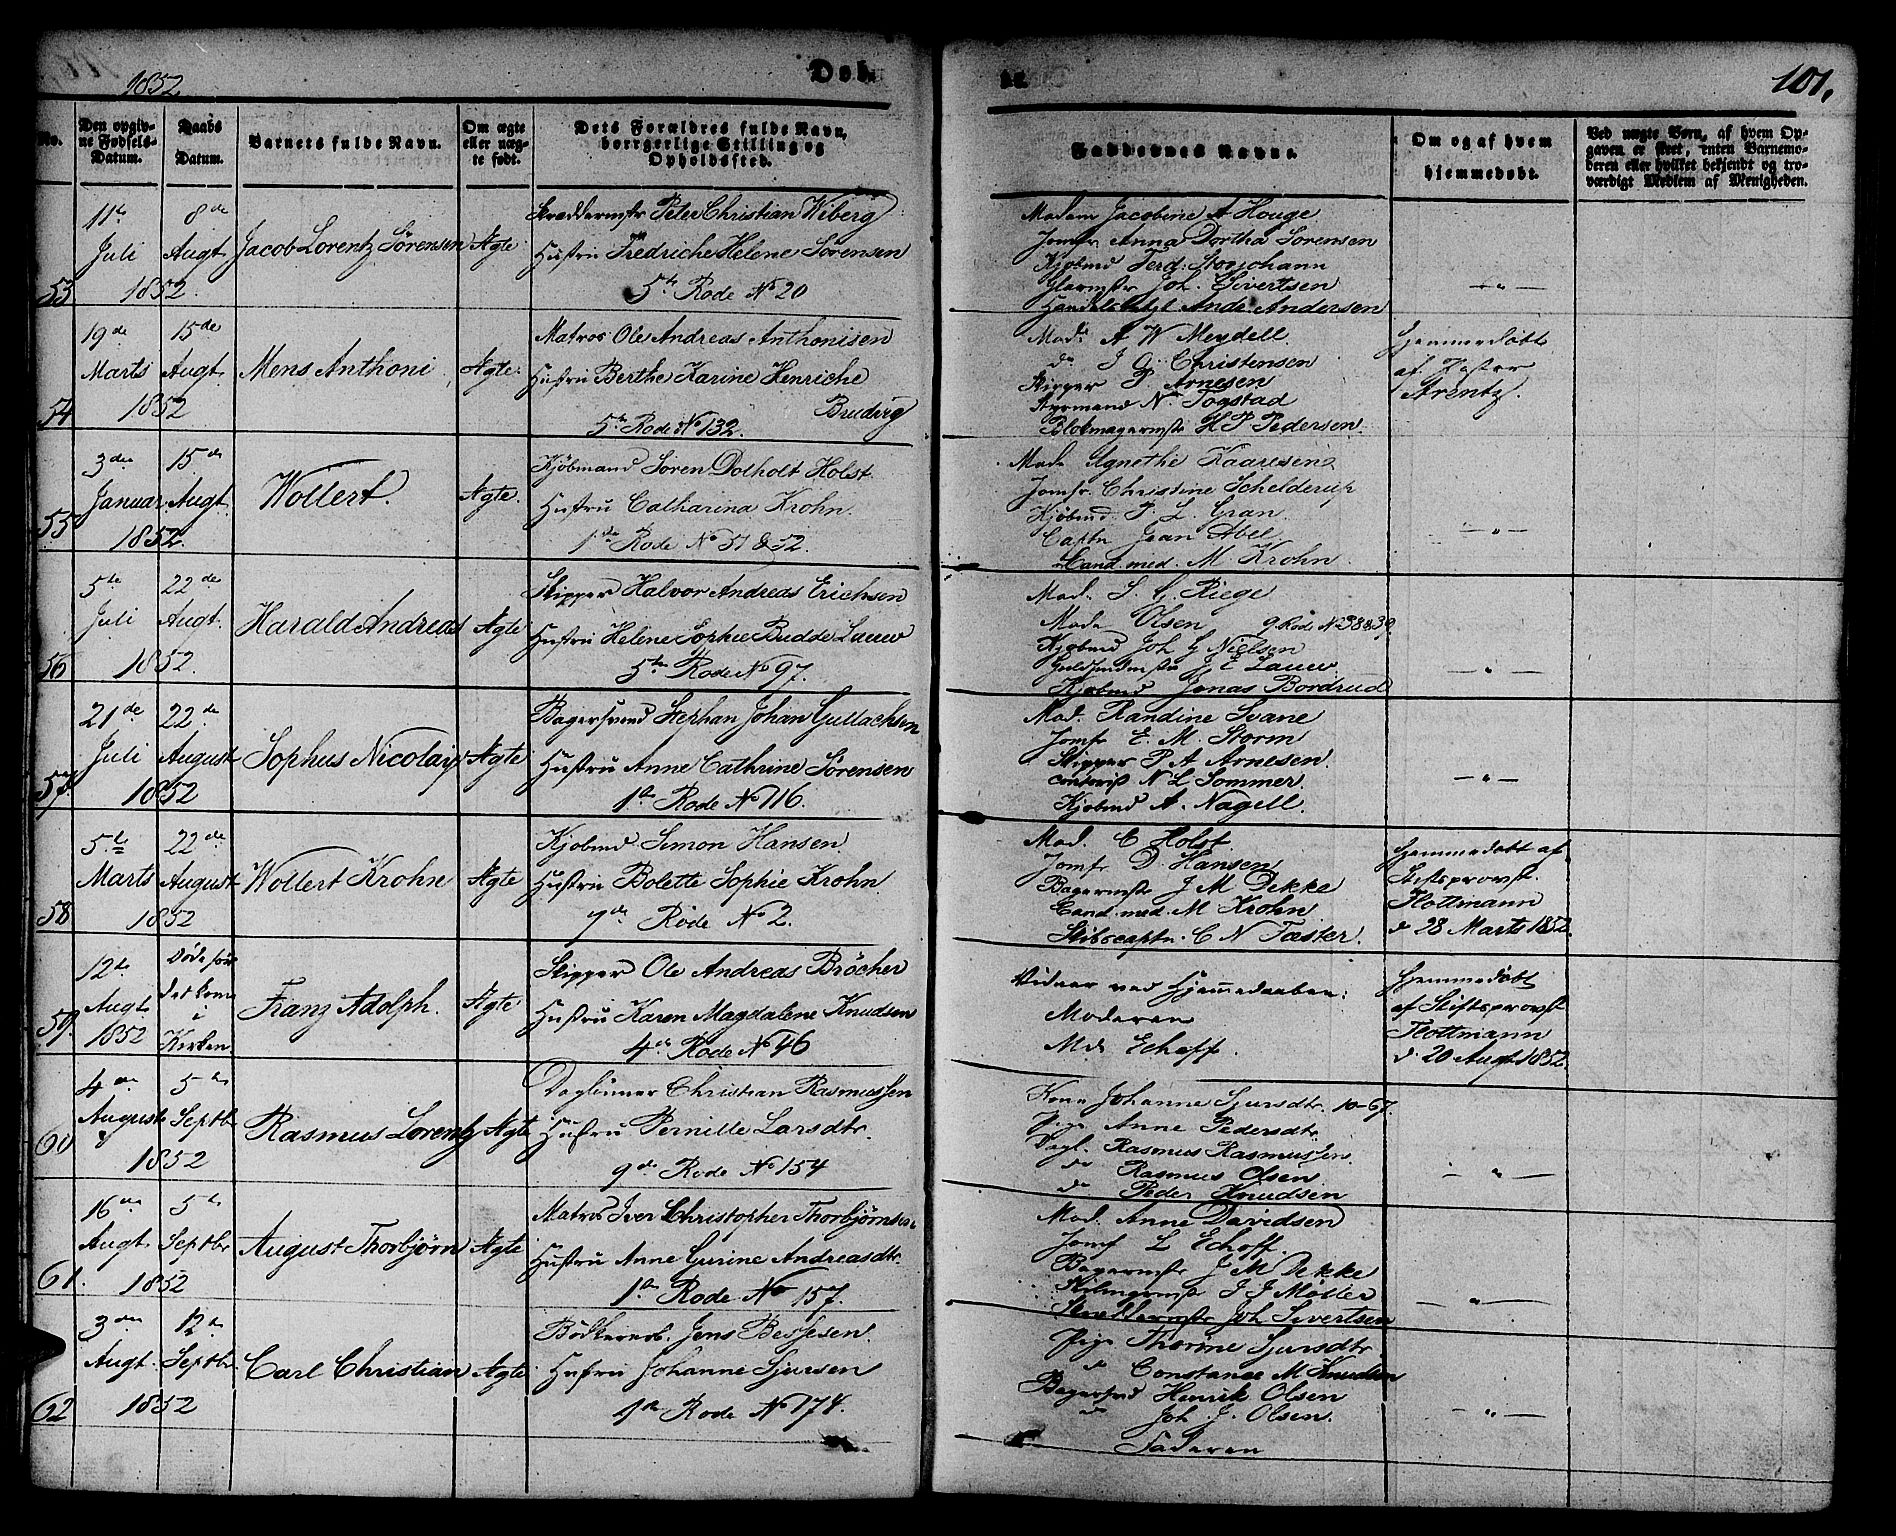 1852
Døbte
101.
No.
Den opgiv-
ne Fødsels-
Datum.
Daabs
Datum.
Barnets fulde Navn.
Om ægte
eller uæg-
te født.
Dets Forældres fulde Navn,
borgerlige Stilling og
Opholdssted.
Faddernes Navne.
Om og af hvem
hjemmedøbt.
Ved uægte Børn, af hvem Op-
gaven er skeet, enten Barnemo-
deren eller hvilket bekjendt og tro-
værdigt Medlem af Menigheden.
53
11te Juli 1852.
8de Augt
Jacob Lorentz Sörensen
Ægte
Skreddermstr Peter Christian Wiberg
Hustru Fredriche Helene Sörensen
5te Rode No 20
Madam Jacobine A Houge
Jomfr Anna Dortha Sorensen
Kjøbmd Ferd: Storjohann
Glarmstr Joh. Sivertsen
Andr. Andersen
54
19de Marts 1852
15de Augt
Mens Anthoni
Ægte
Matros Ole Andreas Anthonisen
Hustru Berthe Karine Henriche
Bruderg
5te Rode No 132.
Mad. A W Meydell
do J G Christensen
Skipper P. Arnesen
Styrmand N. Togstad
Blokmagermstr H P Pedersen.
Hjemmedøbt
af Pastor
Arentz.
55
3die Januar 1852.
15de Augt.
Wollert.
Ægte
Kjöbmand Sören Dolholt Holst.
Hustru Catharina Krohn.
1ste Rode No 51 & 52.
Mad. Agnethe Kaaresen
Jomfr. Christine Schelderup
Kjöbmd. P. L. Gran.
Captn Jean Abel.
Cand. med. M Krohn.
56
5te Juli 1852.
22de Augt.
Harald Andreas
Ægte
Skipper Halvor Andreas Erichsen
Hustru Helene Sophie Budde Lauw
5te Rode No 97.
Mad. S. C. Riege
Mad. Olsen 9 Rode No 38 & 39.
Kjöbmd Joh G Nielsen
Guldsmedmstr J E Lauw
Kjöbmd Jonas Bordrud
57
21de Juli 1852
22de August
Sophus Nicolay
Ægte
Bagersvend Stephan Johan Gullachsen
Hustru Anne Cathrine Sörensen
1ste Rode No 116.
Mad. Randine Svane
Jomfr E. M Storm
Skipper P. A Arnesen.
N L Sommer.
Kjöbmd A. Nagell.
58
5te Marts 1852
22de August
Wollert Krohn
Ægte
Kjöbmd Simon Hansen
Hustru Bolette Sophie Krohn
7de Rode No 2.
Mad. C Holst.
Jomfr D. Hansen
Bagermstr J M Dekke
Cand. med. M Krohn
Skibscaptn. C N Tæster.
Hjemmedøbt af
Stiftsprovst
Flottmann
d 28 Marts 1852.
59.
12te Augt 1852
Döde før
det kom
i
Kirken.
Franz Adolph.
Ægte
Skipper Ole Andreas Bröcher
Hustru Karen Magdalene Knudsen
4de Rode No 46
Vidner ved Hjemmedaaben:
Moderen
Md. Echoff.
Hjemmedøbt
af Stiftsprovst
Flottmann
d. 20 Augt 1852.
60
4de August 1852
5te Septbr
Rasmus Lorentz
Ægte
Daglønner Christian Rasmussen
Hustru Pernille Larsdtr.
9de Rode No 154
Kone Johanne Sjursdtr. 10-67.
Pige Anne Pedersdtr.
Dagl. Rasmus Rasmussen.
do Rasmus Olsen
do Peder Knudsen
61.
16de Augt. 1852
5te Septbr
August Thorbjørn
Ægte
Matros Iver Christopher Thorbjörnsen
Hustru Anne Gurine Andreasdtr.
1ste Rode No 157.
Mad. Anne Davidsen
Jomf L Echoff.
Bagermstr J M Dekke
J J Møller
Skreddermstr Joh Sivertsen
62
3die Augt. 1852
12te Septbr
Carl Christian
Ægte
Bödkersv. Jens Bessesen.
Hustru Johanne Sjursen
1ste Rode No 174.
Pige Thorine Sjursdtr
do Constance M Knudsen
Bagersvd Henrik Olsen
do Joh J. Olsen.
Faderen